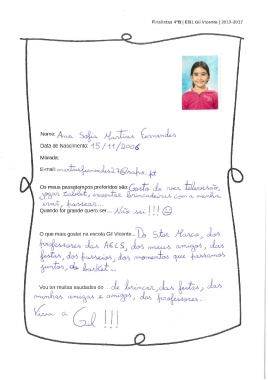 Finalistas 4ºB | EB1 Gil Vicente | 2013-2017
Nome: Ana Sofia Martins Fernandes
Data de Nascimento: 15/11/2006
Morada:
E-mail: martinsfernandes27@sapo.pt
Os meus passatempos preferidos são: Gosto de ver televisão,
jogar tablet, inventar brincadeiras com a minha
irmã, passear...
Quando for grande quero ser... Não sei!!! ☺
O que mais gostei na escola Gil Vicente... Do Stor Marco, dos
professores das AECS, dos meus amigos, das
festas, dos passeios, dos momentos que passamos
juntos, do basket...
Vou ter muitas saudades do... de brincar, das festas, das
minhas amigas e amigos, dos professores...
Viva a Gil!!!